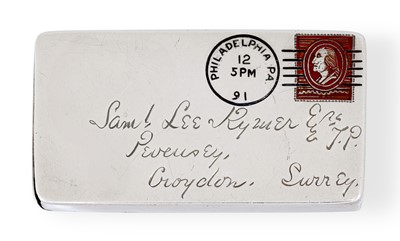 PHILADELPHIA PA
12
5 PM
91
Saml Lee Kymer Esq
& J.P.
Pevensey,
Croydon. Surrey.